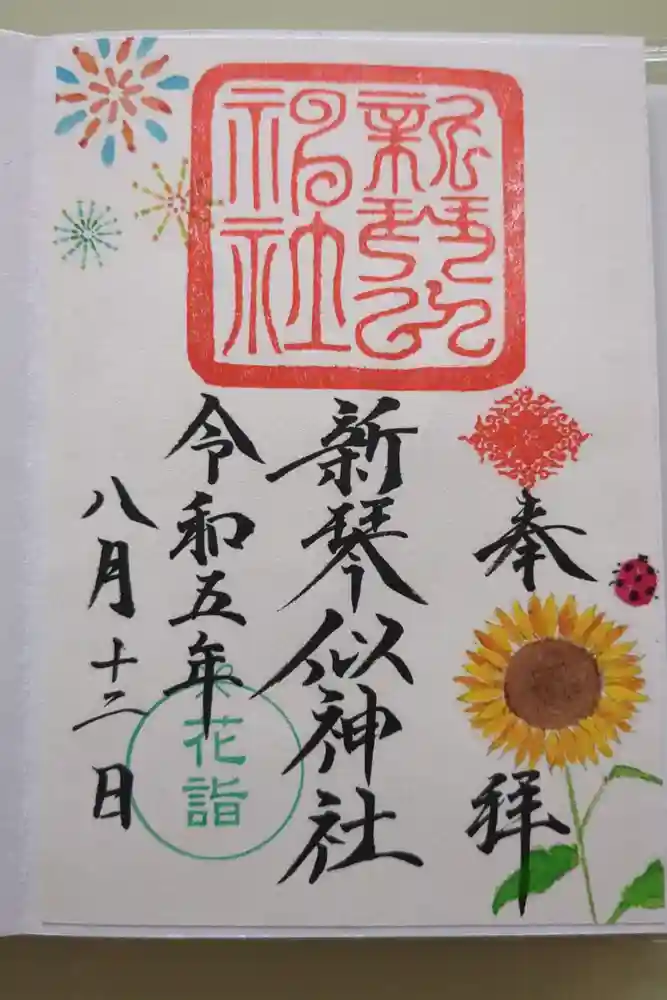 新琴似
神社
奉拝
新琴似神社
令和五年
八月十二日
花詣